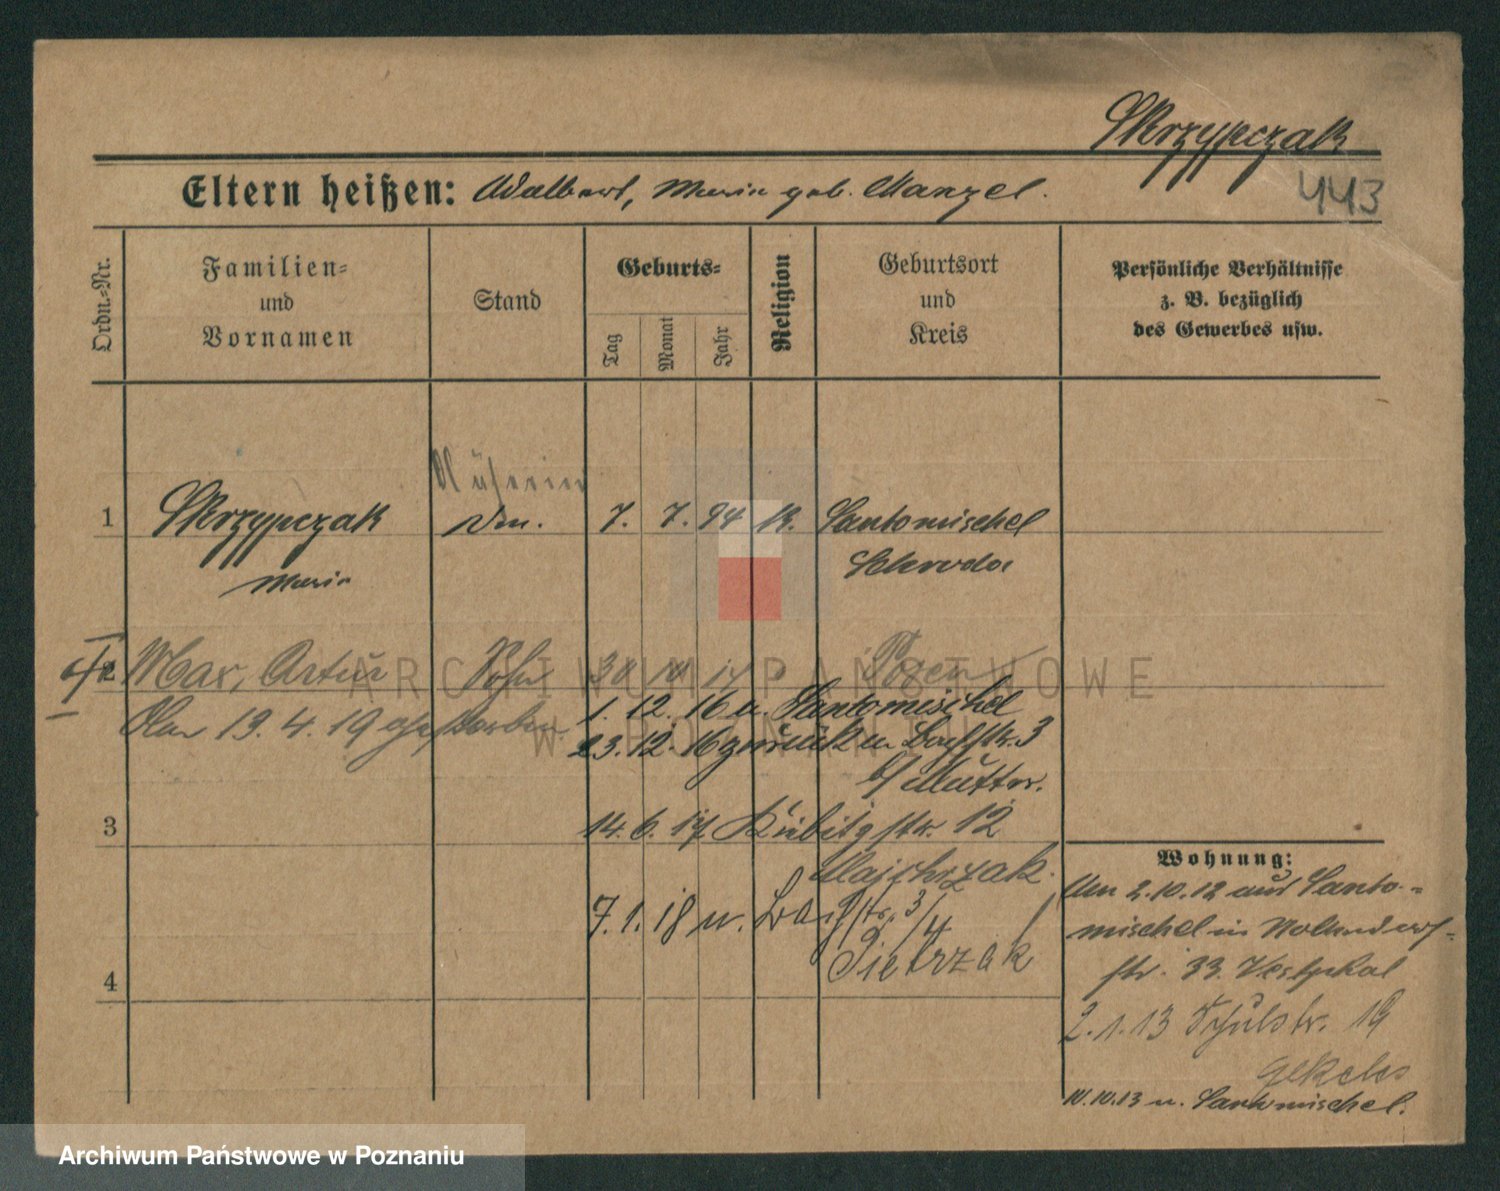 Skrzypczak
Eltern heißen: Adalbert, Maria geb. Manzel.
443
Ordn.-Nr.
Familien-
und
Vornamen
Stand
Geburts-
Tag
Monat
Jahr
Religion
Geburtsort
und
Kreis
Persönliche Verhältnisse
z. B. bezüglich
des Gewerbes usw.
Näherin
1 Skrzypczak 7. 7. 94 k. Santomischel
Maria Schroda
2 Max, Artur Sohn 30 10 17 Posen
Am 19.4.19 gestorben.
1. 12. 16 n. Santomischel
23. 12. 16 zurück 3
b/ Mutter.
3
14. 6. 17 12
Majchrzak.
7. 1. 18 n. 3/4
Pietrzak
4
Wohnung:
Am 2.10.12 aus Santo-
mischel in
str. 33.
2.1.13 Schulstr. 19
10.10.13 n. Santomischel.
ARCHIWUM PAŃSTWOWE
W POZNANIU
Archiwum Państwowe w Poznaniu